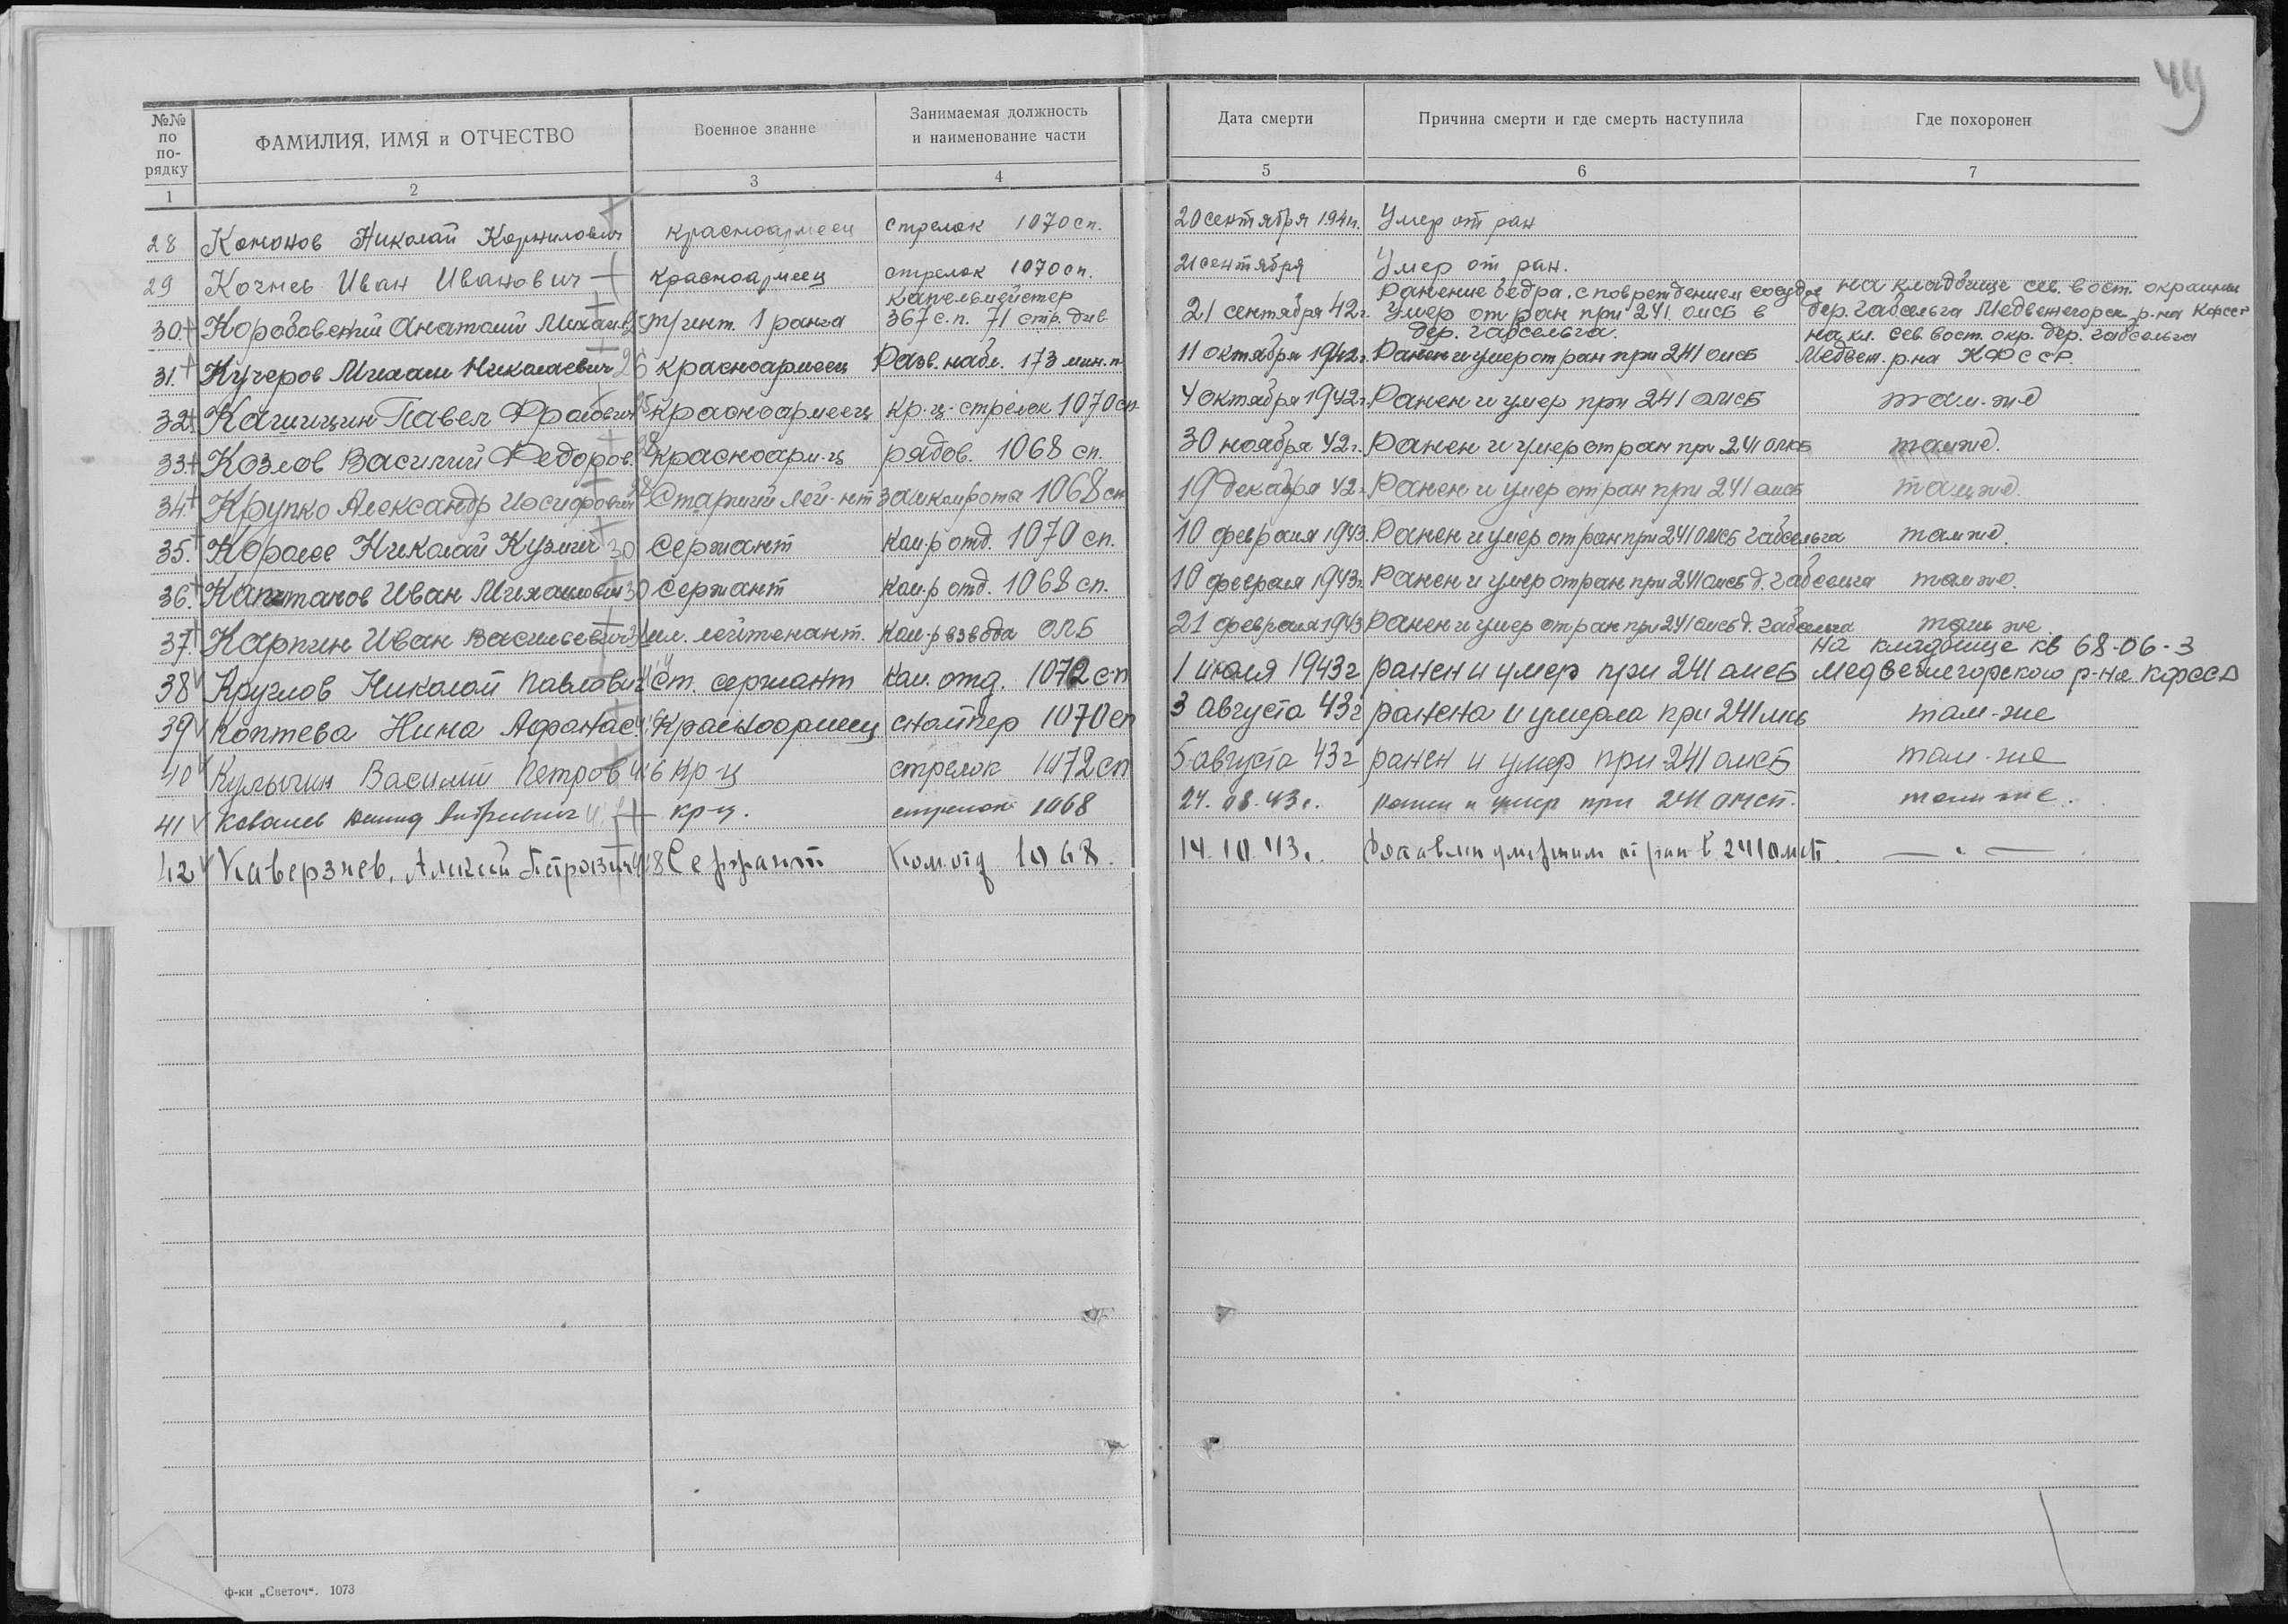 49
№№ по по-рядку | ФАМИЛИЯ, ИМЯ и ОТЧЕСТВО | Военное звание | Занимаемая должность и наименование части | Дата смерти | Причина смерти и где смерть наступила | Где похоронен
1 | 2 | 3 | 4 | 5 | 6 | 7
28 Кононов Николай Корнилович красноармеец стрелок 1070 сп. 20 сентября Умер от ран
29 Кочнев Иван Иванович красноармеец стрелок 1070 сп. 21 сентября Умер от ран.
30. Коробовский Анатолий Михаил. инт. 1 ранга капельмейстер 367 с.п. 71 стр. див 21 сентября 42г. Ранение бедра, с повреждением сосудов Умер от ран при 241 омсб в дер. Габсельга. на кладбище сев. вост. окраины дер. Габсельга Медвежегорск. р-на КФССР
31. Кучеров Михаил Николаевич 26 красноармеец Разв. набл. 173 мин. п. 11 октября 1942г. Ранен и умер от ран при 241 омсб на кл. сев. вост. окр. дер. Габсельга Медвеж. р-на КФССР
32. Кашицин Павел Фролович красноармеец кр-ц-стрелок 1070 сп 4 октября 1942г. Ранен и умер при 241 омсб там-же
33. Козлов Василий Федоров. 28 красноарм-ц рядов. 1068 сп. 30 ноября 42г. Ранен и умер от ран при 241 омсб там же.
34. Крупко Александр Иосифович Старший лей-нт замкомрота 1068 сп 19 декабря 42г. Ранен и умер от ран при 241 омсб там же.
35. Королев Николай Кузмич 30 Сержант ком-р отд. 1070 сп. 10 февраля 1943. Ранен и умер от ран при 241 омсб Габсельга там же.
36. Капитанов Иван Михаилович 30 Сержант ком-р отд. 1068 сп. 10 февраля 1943г. Ранен и умер от ран при 241 омсб д. Габсельга там же.
37. Карпин Иван Васильевич мл. лейтенант. ком-р взвода ОЛБ 21 февраля 1943 Ранен и умер от ран при 241 омсб д. Габсельга там же
38 Круглов Николай Павлович ст. сержант ком. отд. 1072 сп 1 июля 1943г ранен и умер при 241 омсб на кладбище кв 68-06-3 медвежегорского р-на КФССР
39 Коптева Нина Афанас. Красноармеец снайпер 1070 сп 3 августа 43г ранена и умерла при 241 мсб там-же
40 Кулычин Василий Петров кр-ц стрелок 1072 сп 5 августа 43г ранен и умер при 241 омсб там-же
41 Ковалев кр-ц. стрелок 1068 24.08.43г. ранен и умер при 241 омсб. там же.
42 Каверзнев, Алексей Петрович Сержант Ком отд 1068. 14.10.43г. Доставлен умершим от ран в 241 омсб. — " —
ф-ки „Светоч“. 1073